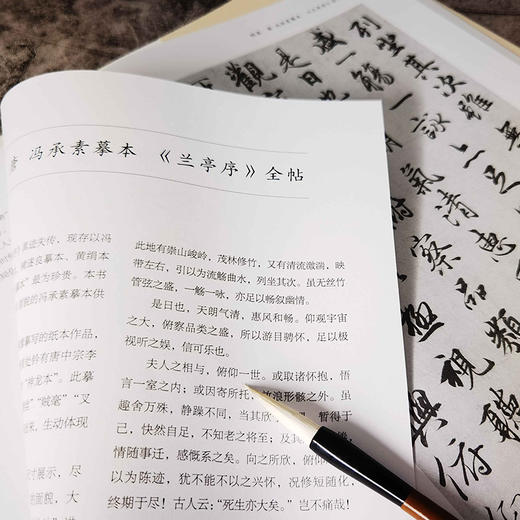 唐 冯承素摹本 《兰亭序》全帖
真迹失传，现存以冯
褚遂良摹本、黄绢本
本”最为珍贵。本书
馆的冯承素摹本供
摹写的纸本作品，
史钤有唐中宗李
“神龙本”。此摹
“贼毫”“叉
来，生动体现
寸展示，尽
面貌，大
此地有崇山峻岭，茂林修竹，又有清流激湍，映
带左右，引以为流觞曲水，列坐其次。虽无丝竹
管弦之盛，一觞一咏，亦足以畅叙幽情。
是日也，天朗气清，惠风和畅。仰观宇宙
之大，俯察品类之盛，所以游目骋怀，足以极
视听之娱，信可乐也。
夫人之相与，俯仰一世。或取诸怀抱，悟
言一室之内；或因寄所托，放浪形骸之外。虽
趣舍万殊，静躁不同，当其欣 暂得于
己，快然自足，不知老之将至；及其
情随事迁，感慨系之矣。向之所欣，俯仰
以为陈迹，犹不能不以之兴怀，况修短随化，
终期于尽！古人云：“死生亦大矣。”岂不痛哉！
列坐其次雖無
盛一觴一詠亦足
是日也 氣清惠
觀 察品類
極視聽
與俯